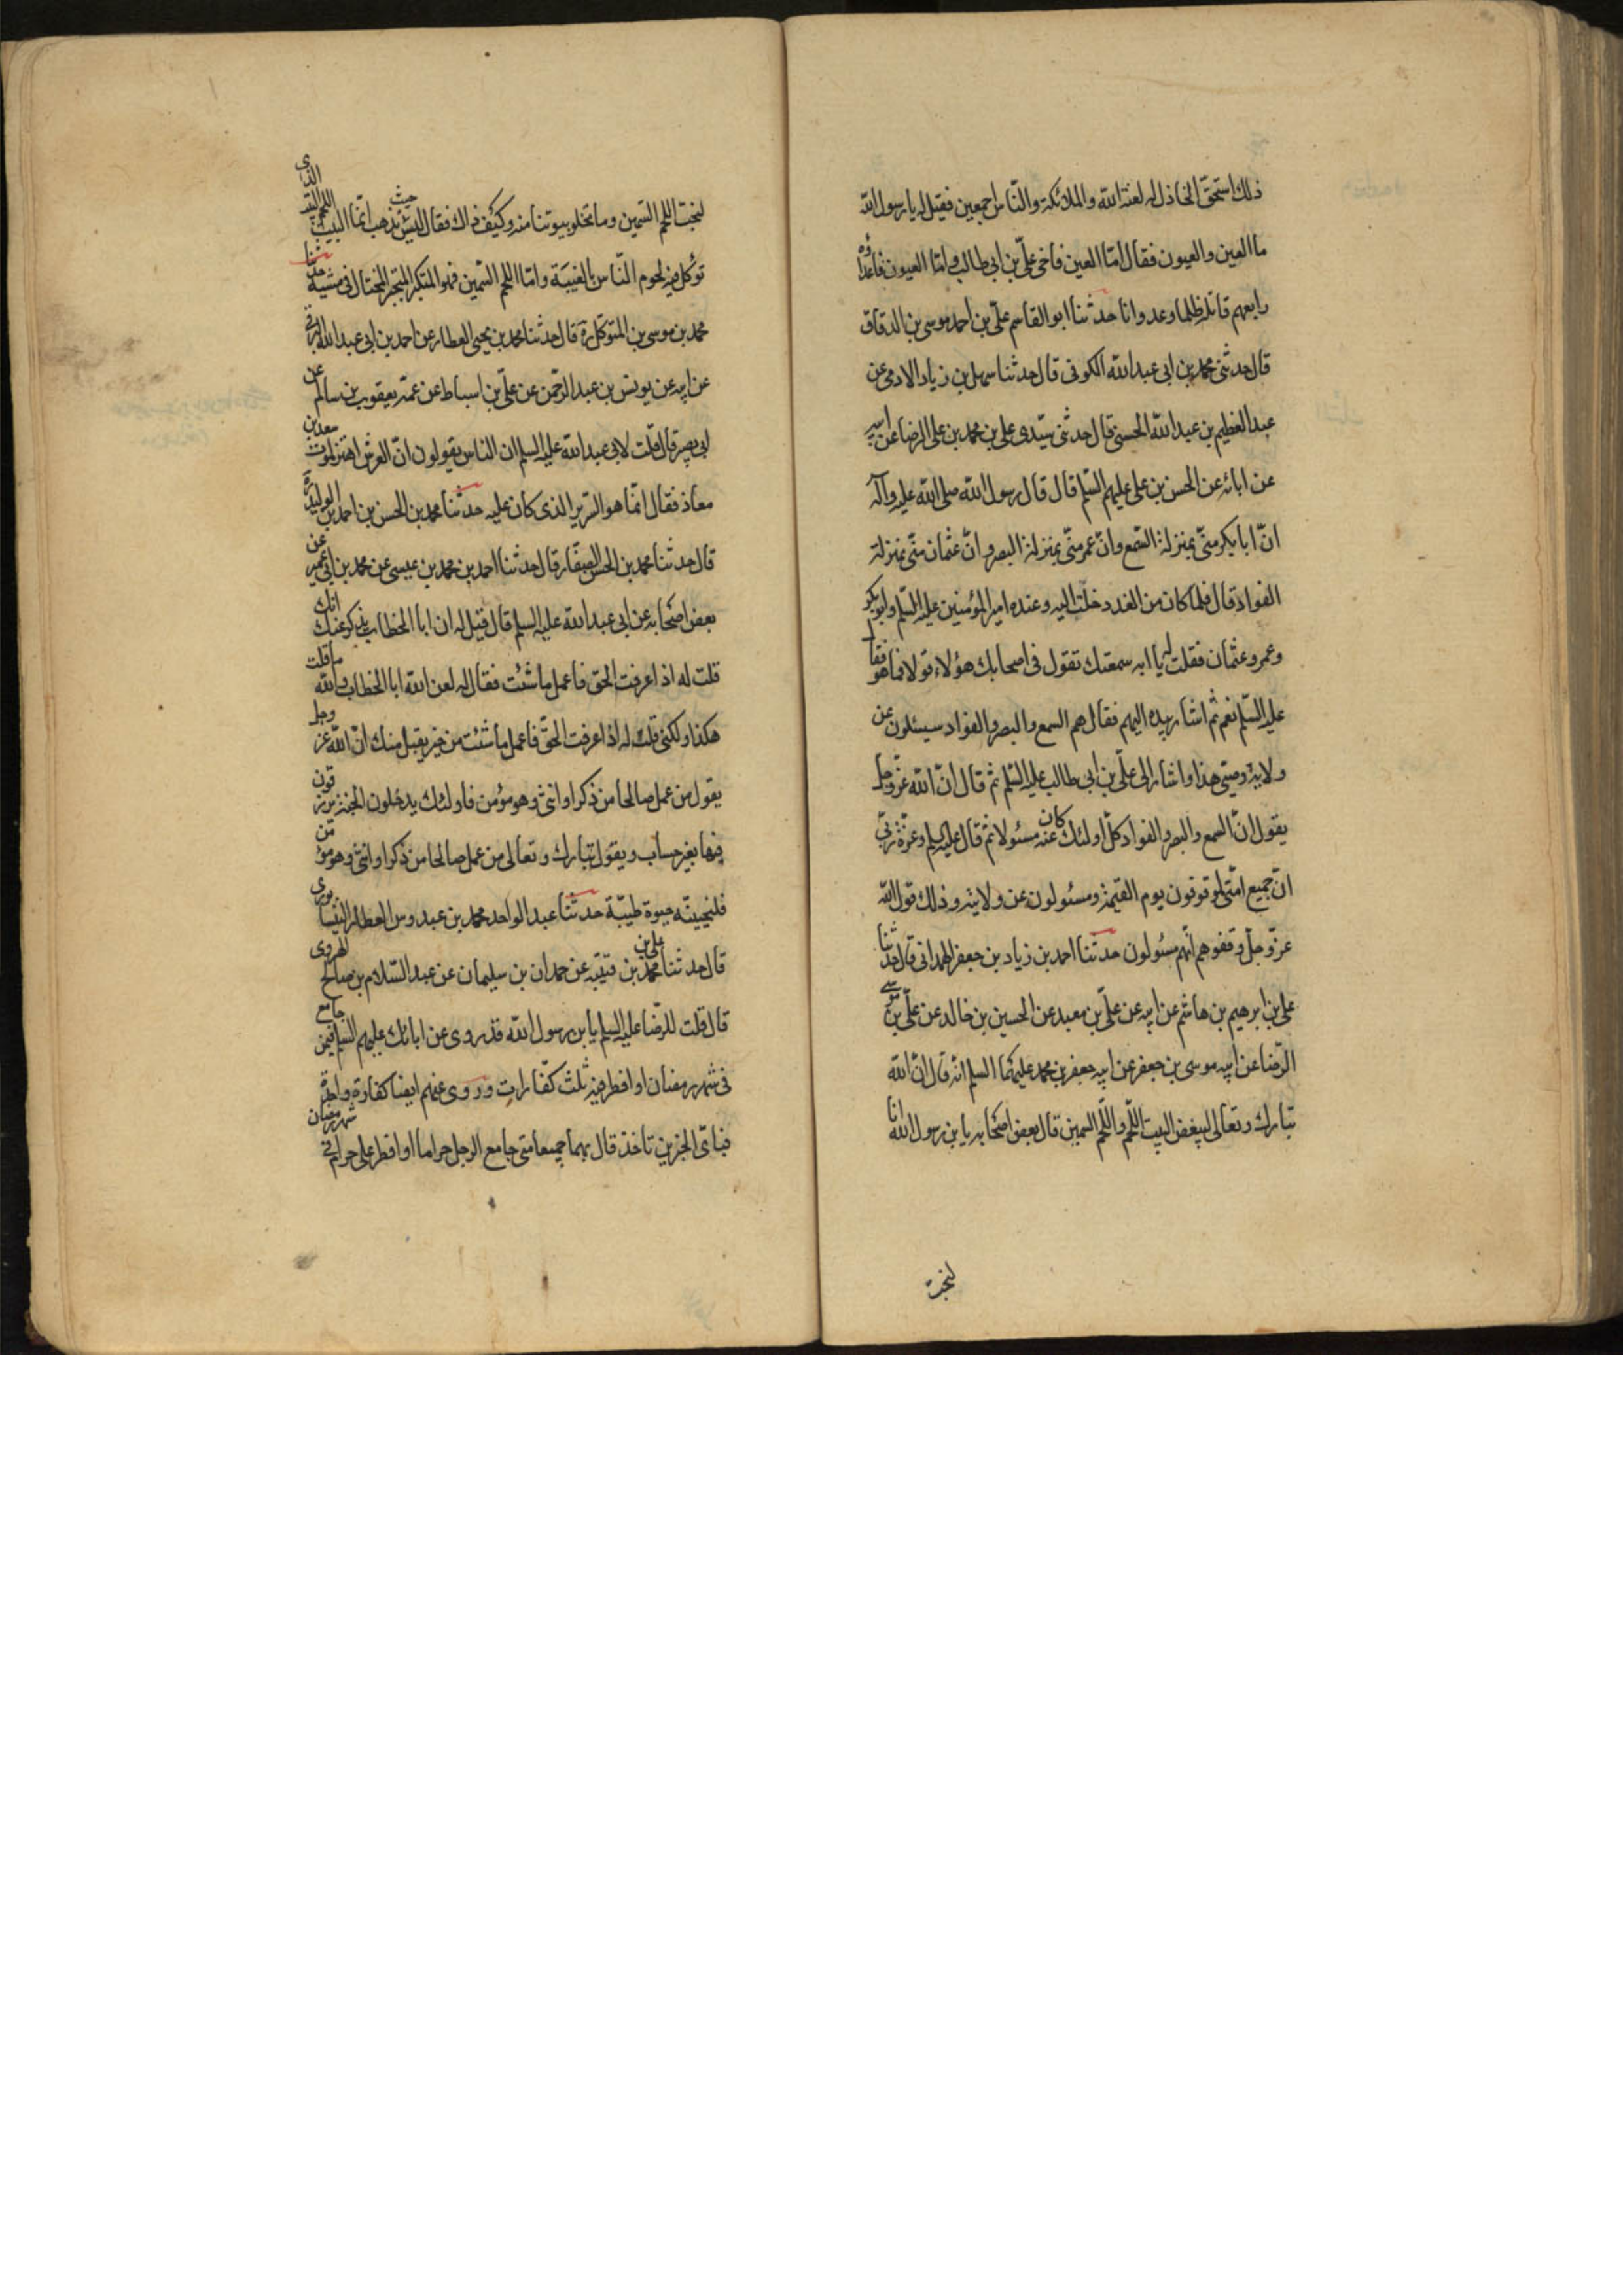 ذلك استحق الخاذل له لعنة الله والملائكة والناس اجمعين فقيل له يا رسول الله
ما العين والعيون فقال اما العين فاخى على بن ابى طالب واما العيون فاعداؤه
رابعهم قاتله ظلما وعدوانا حدثنا ابو القاسم على بن احمد موسى بن الدقاق
قال حدثنى محمد بن ابى عبد الله الكوفى قال حدثنا سهل بن زياد الادمى عن
عبد العظيم بن عبد الله الحسنى قال حدثنى سيدى على بن محمد بن على الرضا عن ابيه
عن ابائه عن الحسن بن على عليهم السلم قال قال رسول الله صلى الله عليه وآله
ان ابا بكر منى بمنزلة السمع وان عمر منى بمنزلة البصر وان عثمان منى بمنزلة
الفواد قال فلما كان من الغد دخلت اليه وعنده امير المؤمنين عليه السلم وابو بكر
وعمر وعثمان فقلت له يا ابه سمعتك تقول فى اصحابك هؤلاء قولا فما هو فقال
عليه السلم نعم ثم اشار بيده اليهم فقال هم السمع والبصر والفواد سيسئلون عن
ولاية وصيى هذا واشار الى على بن ابى طالب عليه السلم ثم قال ان الله عز وجل
يقول ان السمع والبصر والفواد كل اولئك كان عنه مسئولا ثم قال عليه السلم وعزة ربى
ان جميع امتى لموقوفون يوم القيمة ومسئولون عن ولايته وذلك قول الله
عز وجل وقفوهم انهم مسئولون حدثنا احمد بن زياد بن جعفر الهمدانى قال حدثنا
على بن ابرهيم بن هاشم عن ابيه عن على بن معبد عن الحسين بن خالد عن على بن موسى
الرضا عن ابيه موسى بن جعفر عن ابيه جعفر بن محمد عليهما السلم انه قال ان الله
تبارك وتعالى ليبغض البيت اللحم واللحم السمين قال بعض اصحابه يا بن رسول الله انا
لنحب
لنحب اللحم السمين وما تخلو بيوتنا منه وكيف ذاك فقال ليس حيث تذهب انما البيت اللحم البيت الذى
توكل فيه لحوم الناس بالغيبة واما اللحم السمين فهو المتكبر المتبختر المختال فى مشيه حدثنا
محمد بن موسى بن المتوكل ره قال حدثنا محمد بن يحيى العطار عن احمد بن ابى عبد الله البرقى
عن ابيه عن يونس بن عبد الرحمن عن على بن اسباط عن عمه يعقوب بن سالم عن
ابى بصير قال قلت لابى عبد الله عليه السلم ان الناس يقولون ان العرش اهتز لموت سعد بن
معاذ فقال انما هو السرير الذى كان عليه حدثنا محمد بن الحسن بن احمد بن الوليد ره
قال حدثنا محمد بن الحسن الصفار قال حدثنا احمد بن محمد بن عيسى عن محمد بن ابى عمير عن
بعض اصحابه عن ابى عبد الله عليه السلم قال قيل له ان ابا الخطاب يذكر عنك انك
قلت له اذا عرفت الحق فاعمل ما شئت فقال له لعن الله ابا الخطاب والله ما قلت
هكذا ولكنى قلت له اذا عرفت الحق فاعمل ما شئت من خير يقبل منك ان الله عز وجل
يقول من عمل صالحا من ذكر او انثى وهو مؤمن فاولئك يدخلون الجنة يرزقون
فيها بغير حساب ويقول تبارك وتعالى من عمل صالحا من ذكر او انثى وهو مؤمن
فلنحيينه حيوة طيبة حدثنا عبد الواحد محمد بن عبدوس العطار النيسابورى
قال حدثنا على بن محمد بن قتيبه عن حمدان بن سليمان عن عبد السلام بن صالح الهروى
قال قلت للرضا عليه السلم يا بن رسول الله قد روى عن ابائك عليهم السلم فيمن جامع
فى شهر رمضان او افطر فيه ثلث كفارات وروى عنهم ايضا كفارة واحدة
فباى الخبرين تاخذ قال بهما جميعا متى جامع الرجل حراما او افطر على حرام فى شهر رمضان